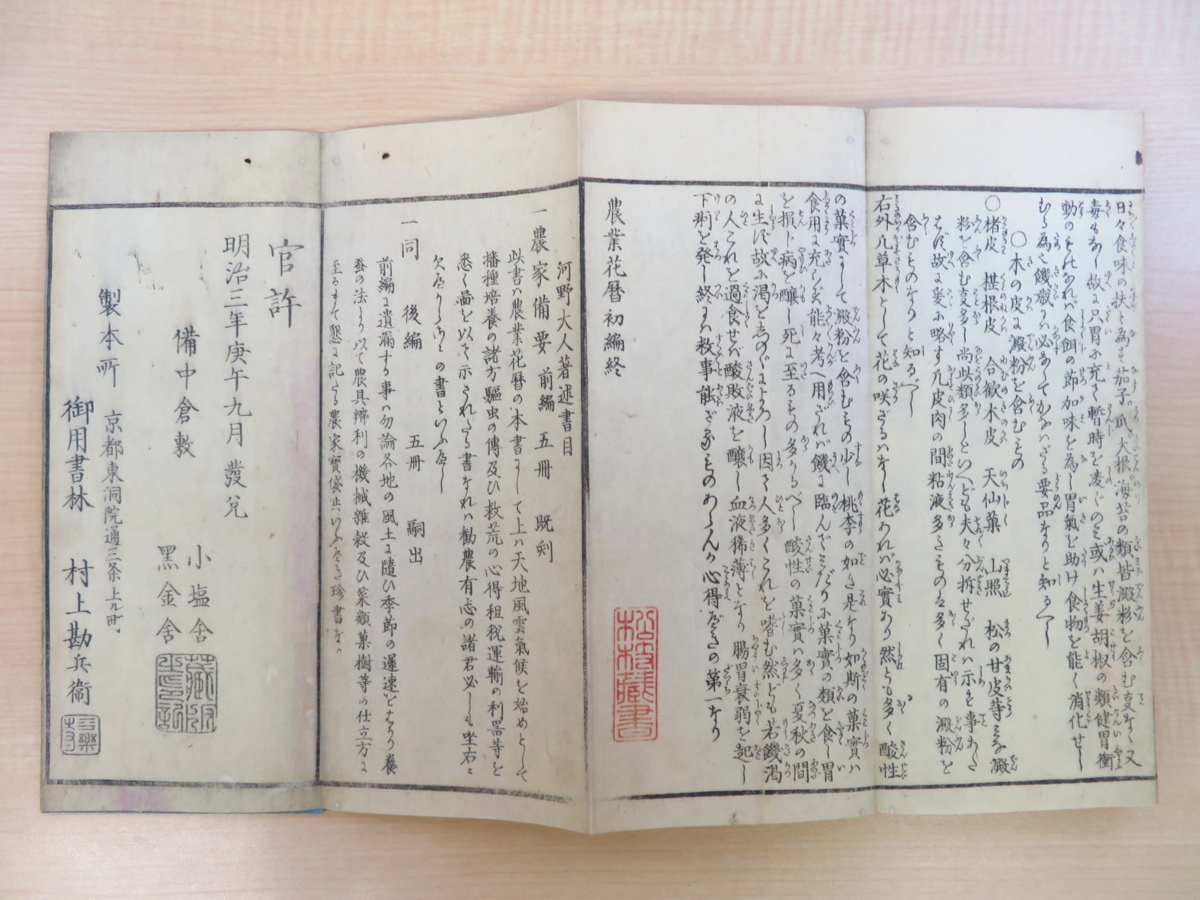 日々食味の扶と為ます茄子瓜大根海苔の類皆澱粉を含む支なく又
毒もなし故に只胃に充て暫時を凌ぐのミ或ハ生姜胡椒の類健胃衝
動のものなれバ食餌の節加味を為し胃氣を助け食物を能く消化せし
むる為め饑饉にハ必あらでかなハざる要品なりと知るべし
〇木の皮に澱粉を含むもの
〇楮皮 榿根皮 合歓木皮 天仙菓 山照 松の甘皮等ミな澱
粉を含む支多し尚此類多しといへども夫々分拆せざれハ示す事あた
はず故に爰に略す凡皮肉の間粘液多きもの多く固有の澱粉を
含むものなりと知るべし
右外凡草木として花の咲ざるハなし花あれバ必實あり然とも多く酸性
の菓實にして澱粉を含むもの少し桃李の如き是なり如斯の菓實ハ
食用に充し支能々考へ用ざれバ饑に臨んでミだりに菓實の類を食し胃
を損ト病を醸し死に至るもの多かるべし酸性の菓實ハ多く夏秋の間
に生ず故に渇を志のぐによろし因て人多くこれを嗜む然ども若饑渇
の人これを過食せバ酸敗液を醸し血液稀薄となり腸胃衰弱を起し
下痢を発し終にハ救事能ざるものあらんか心得べきの第一なり
農業花暦初編終
松村蔵書
河野大人著述書目
一農家備要 前編 五冊 既刻
此書ハ農業花暦の本書にして上ハ天地風雲氣候を始めとして
播種培養の諸方驅虫の傳及び救荒の心得租税運輸の利器等を
悉く畵を以て示されたる書なれハ勧農有志の諸君必しも坐右に
欠べからざるの書といふべし
一同 後編 五冊 嗣出
前編に遺漏する事ハ勿論各地の風土に隨ひ季節の遲速をはかり養
蚕の法より以て農具辨利の機械雑穀及ひ菜類菓樹等の仕立方に
至るまて懇に記したる農家寳袋共いふべき珍書なり
官許
明治三年庚午九月發兌
備中倉敷
小塩舎
黒金舎
製本所 京都東洞院通三条上ル町
御用書林 村上勘兵衞